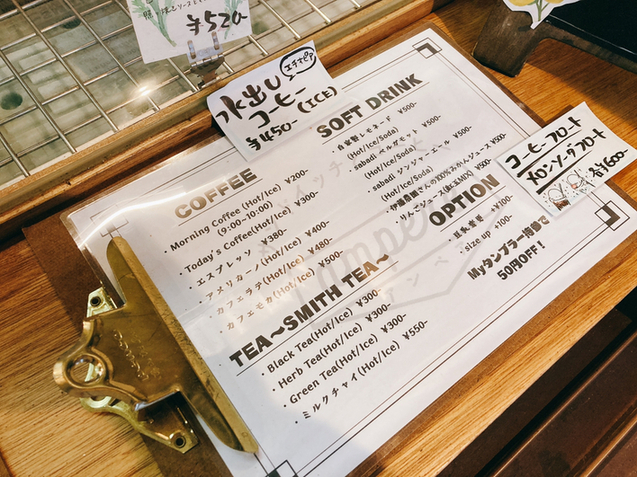 ¥520
水出し
コーヒー
エチオピア
¥450-(ICE)
COFFEE
・Morning Coffee (Hot/Ice) ¥200-
(9:00-10:00)
・Today's Coffee(Hot/Ice) ¥300-
・エスプレッソ ¥380-
・アメリカーノ(Hot/Ice) ¥400-
・カフェラテ(Hot/Ice) ¥480-
・カフェモカ(Hot/Ice) ¥500-
TEA〜SMITH TEA〜
・Black Tea(Hot/Ice) ¥300-
・Herb Tea(Hot/Ice) ¥300-
・Green Tea(Hot/Ice) ¥300-
・ミルクチャイ(Hot/Ice) ¥550-
SOFT DRINK
・自家製レモネード ¥500-
(Hot/Ice/Soda)
・sabadi ベルガモット ¥500-
(Hot/Ice/Soda)
・sabadi ジンジャーエール ¥500-
(Hot/Ice/Soda)
・伊藤農園さんの100%みかんジュース ¥500-
・りんごジュース ¥500-
OPTION
・豆乳変更 +¥100-
・size up +100-
Myタンブラー持参で
50円OFF!
コーヒーフロート
メロンソーダフロート
各¥600-